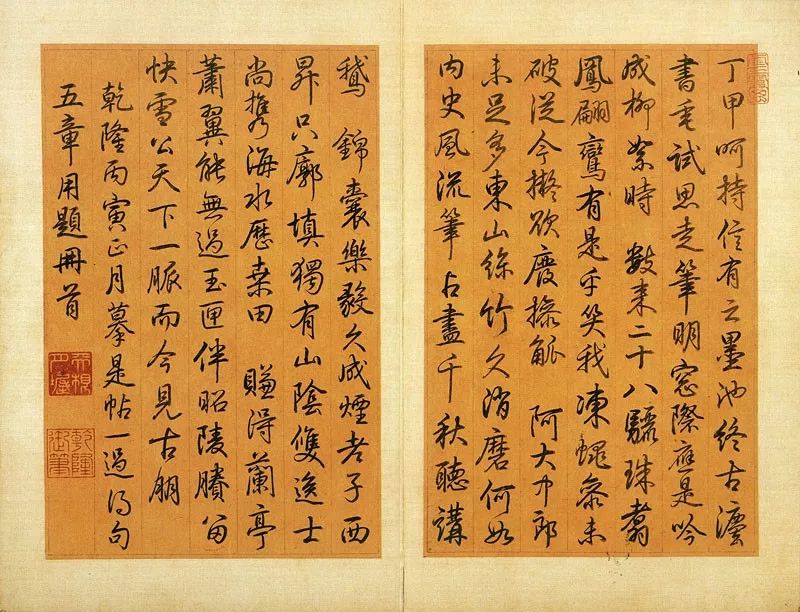 丁甲呵持信有之墨池終古灋
書垂試思走筆明窓際應是吟
成柳絮時　數来二十八驪珠翥
鳳翩鸞有是乎笑我凍蠅參未
破從今擬欲廢操觚　阿大中郎
未足多東山絲竹久消磨何如
内史風流筆占盡千秋聽講
鵝　錦囊樂毅久成煙老子西
昇只廓填獨有山陰雙逸士
尚攜海水歷桑田　賺得蘭亭
蕭翼能無過玉匣伴昭陵賸留
快雪公天下一脈而今見古朋
乾隆丙寅正月摹是帖一過得句
五章用題冊首
乾隆御筆